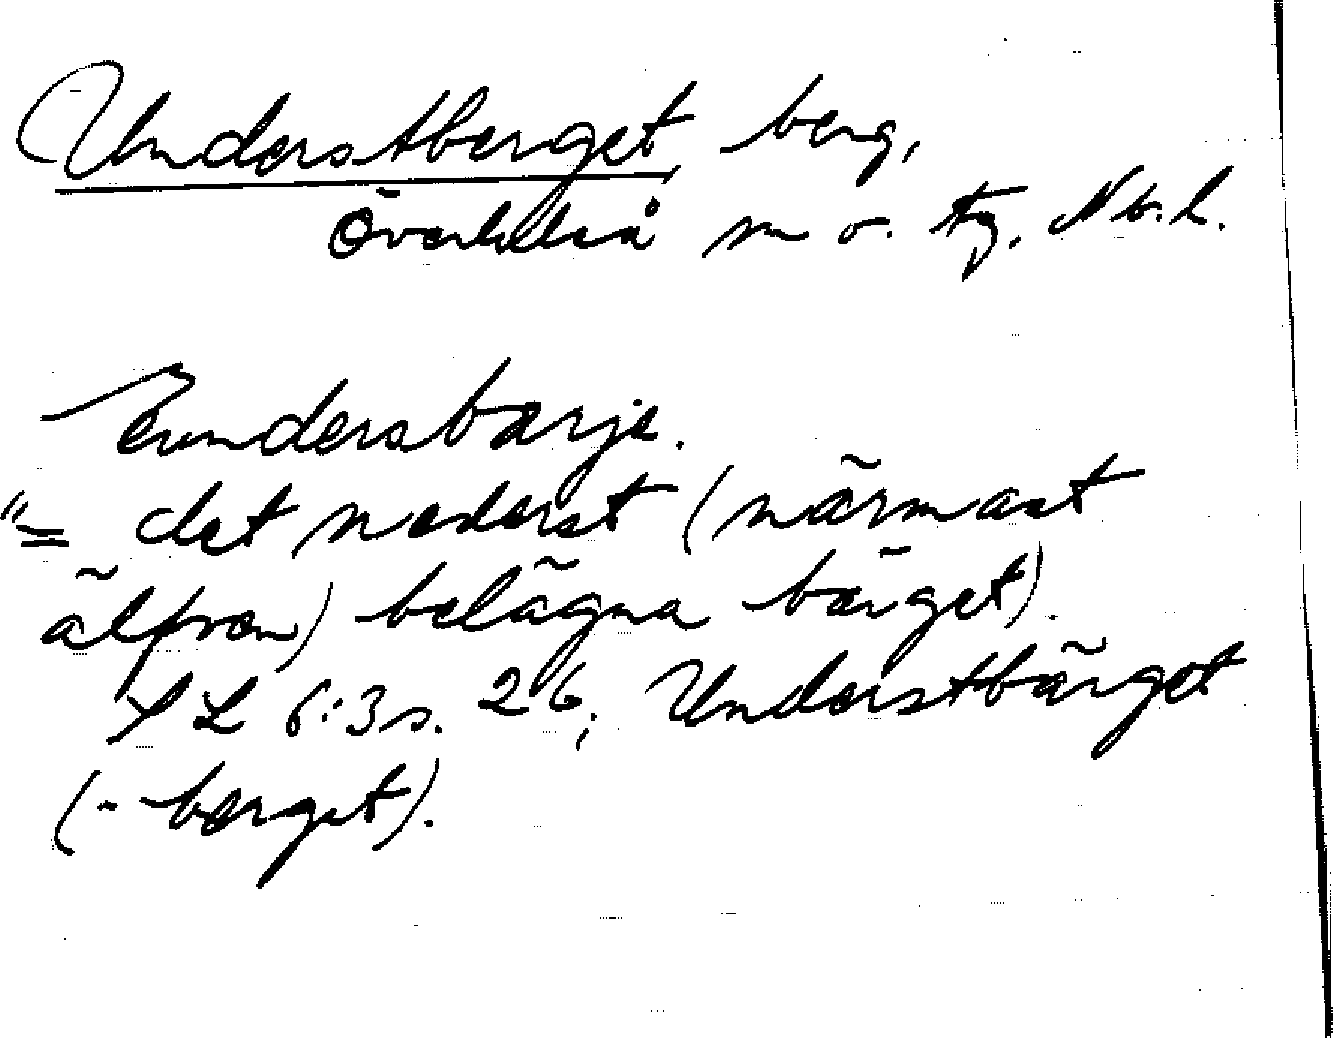 Understberget, berg,
Överluleå sn o. tg. Nb. l.
Eundersbærje.
"= det nederst (närmast
älfven) belägna bärget).
SL 6:3 s. 26; Understbärget
(-berget).